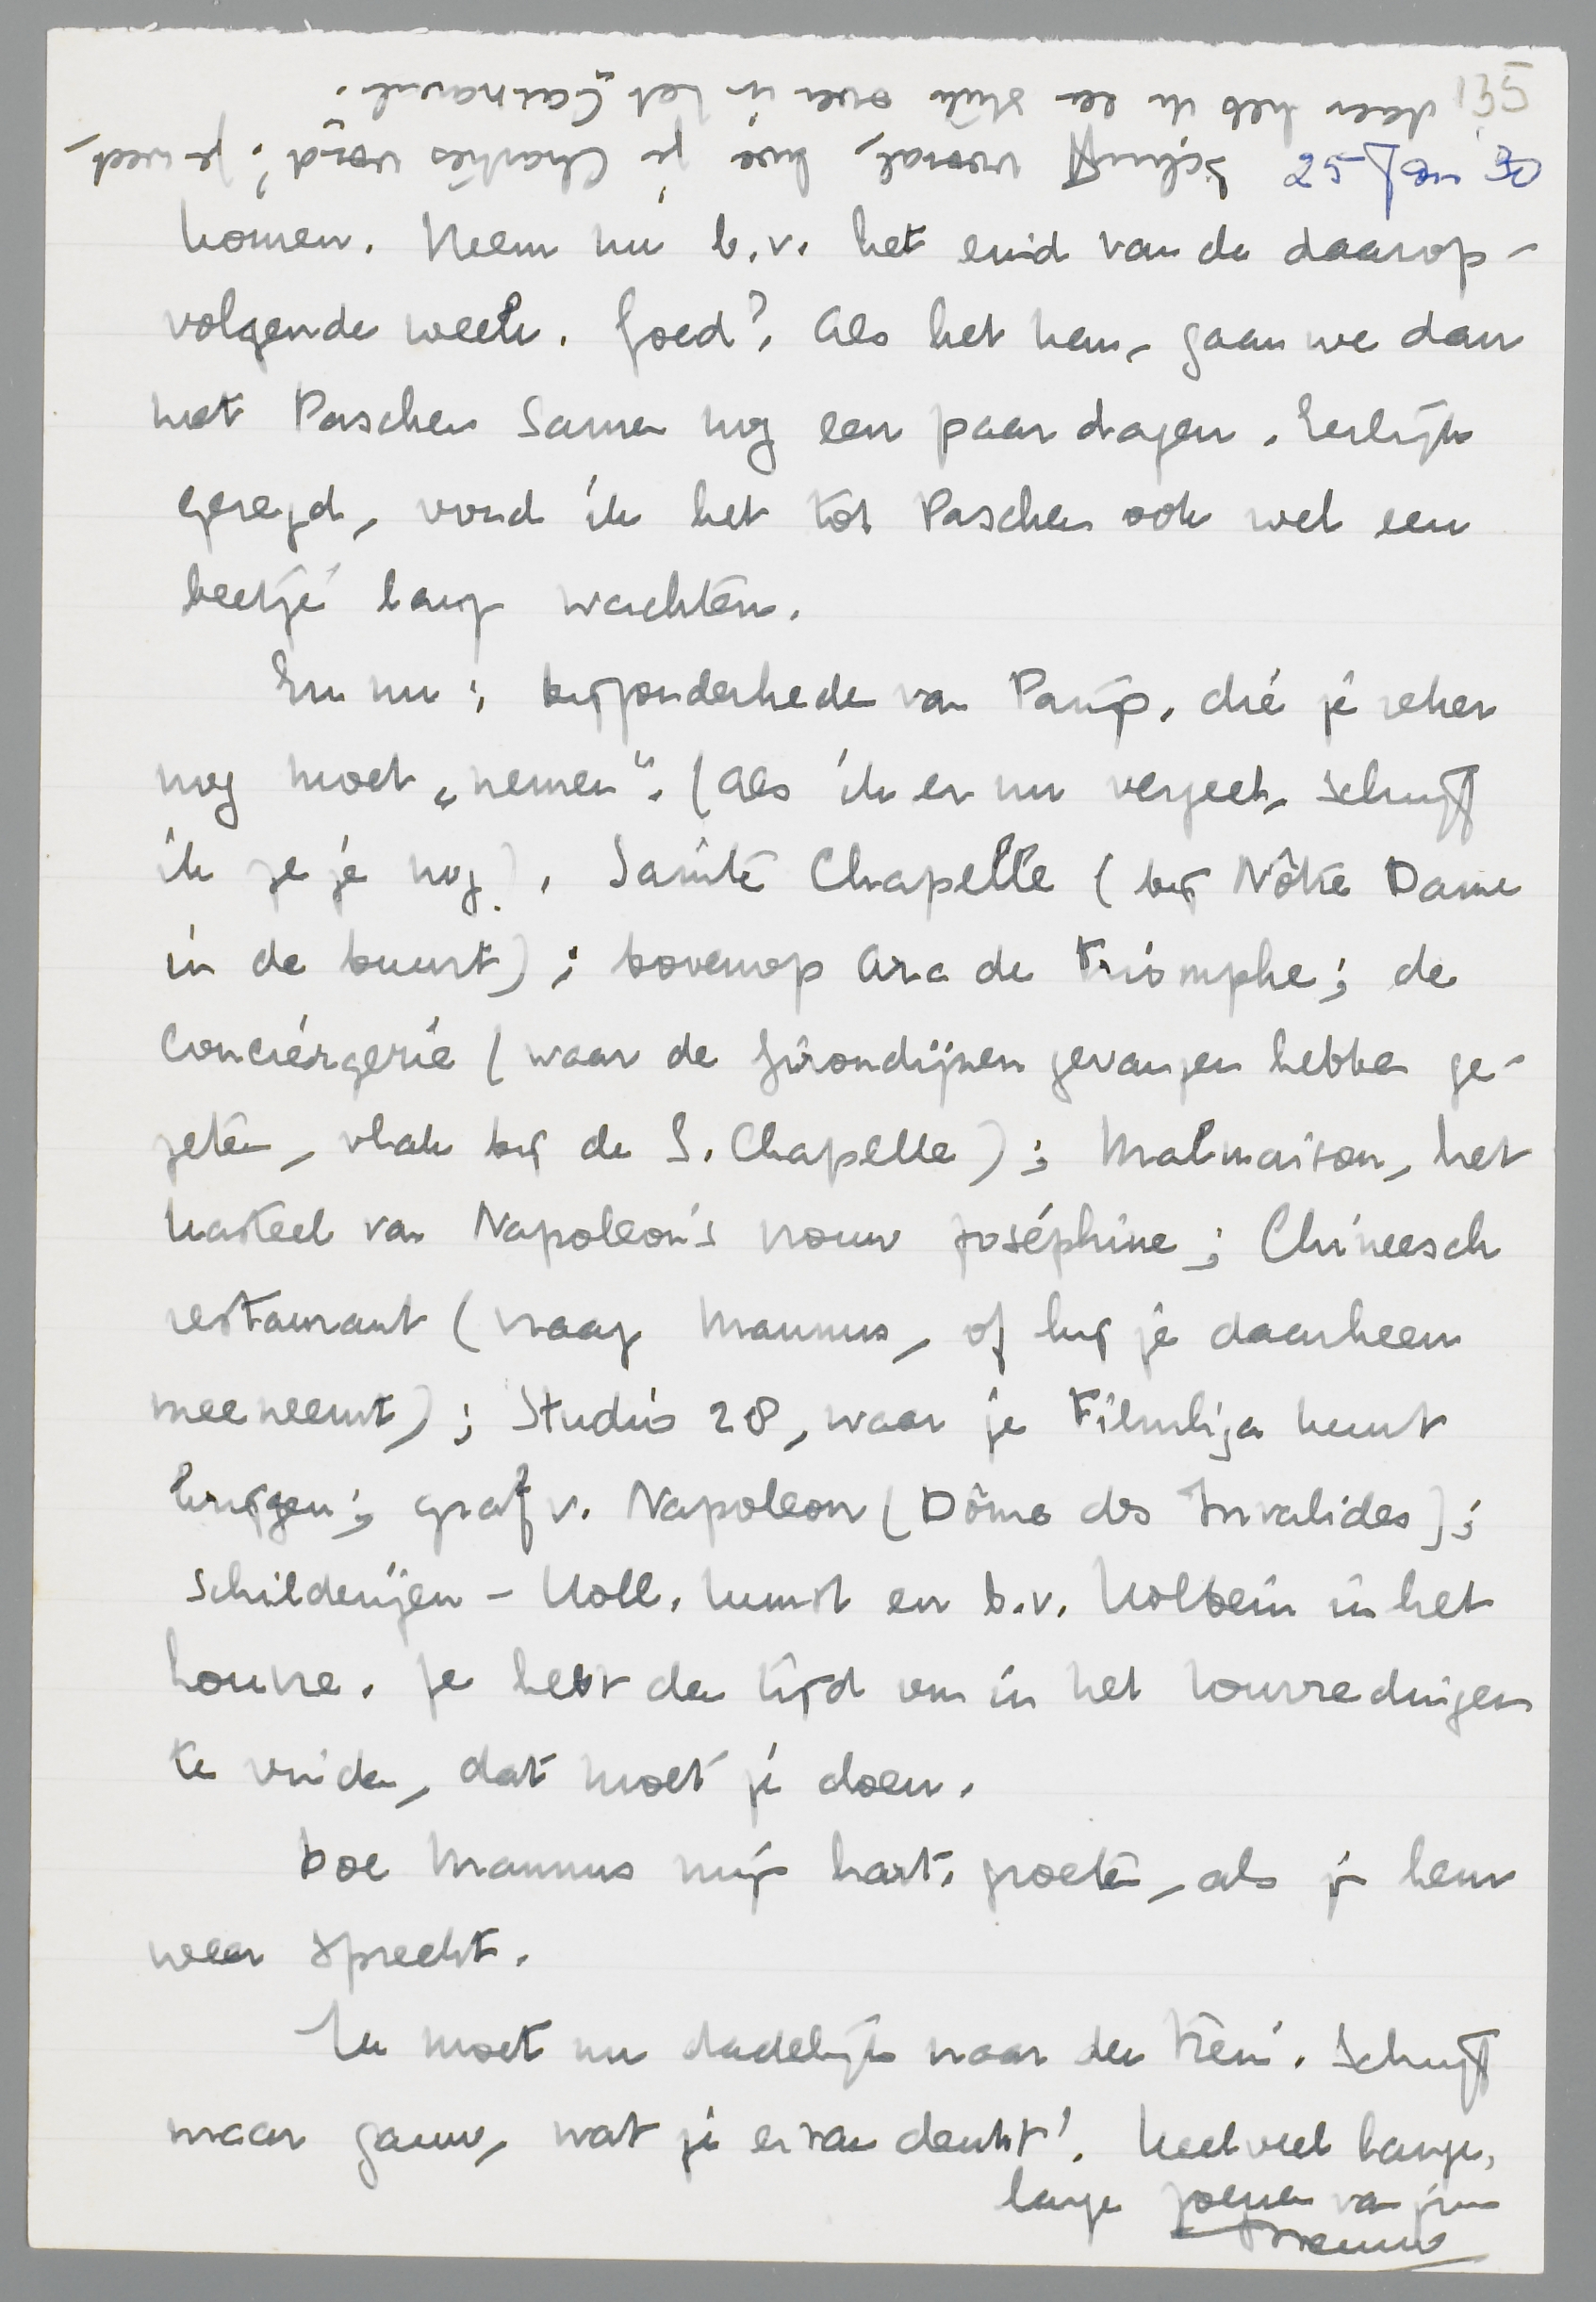 135
25 Jan 30
komen. Neem nu b.v. het eind van de daarop-
volgende week. Goed? Als het kan, gaan we dan
met Paschen samen nog een paar dagen. Eerlijk
gezegd, vond ik het tot Paschen ook wel een
beetje lang wachten.
En nu: bijzonderheden van Parijs, die je zeker
nog moet „nemen". (Als ik er nu vergeet, schrijf
ik ze je nog). Sainte Chapelle (bij Nôtre Dame
in de buurt); bovenop Arc de Triomphe; de
Conciërgerie (waar de Girondijnen gevangen hebben ge-
zeten, vlak bij de S. Chapelle); Malmaison, het
kasteel van Napoleon's vrouw Joséphine; Chineesch
restaurant (vraag Mannus, of hij je daarheen
meeneemt); Studio 28, waar je Filmliga kunt
krijgen; graf v. Napoleon (Dôme des Invalides);
schilderijen - Holl. kunst en b.v. Holbein in het
Louvre. Je hebt den tijd om in het Louvre dingen
te vinden, dat moet je doen.
Doe Mannus mijn hart. groeten, als je hem
weer spreekt.
Ik moet nu dadelijk naar den trein. Schrijf
maar gauw, wat je ervan denkt! Heel veel lange,
lange zoenen van jouw
Menno
Schrijf vooral, hoe je Charlies vond; je weet,
daar heb ik een stuk over in het „Carnaval".